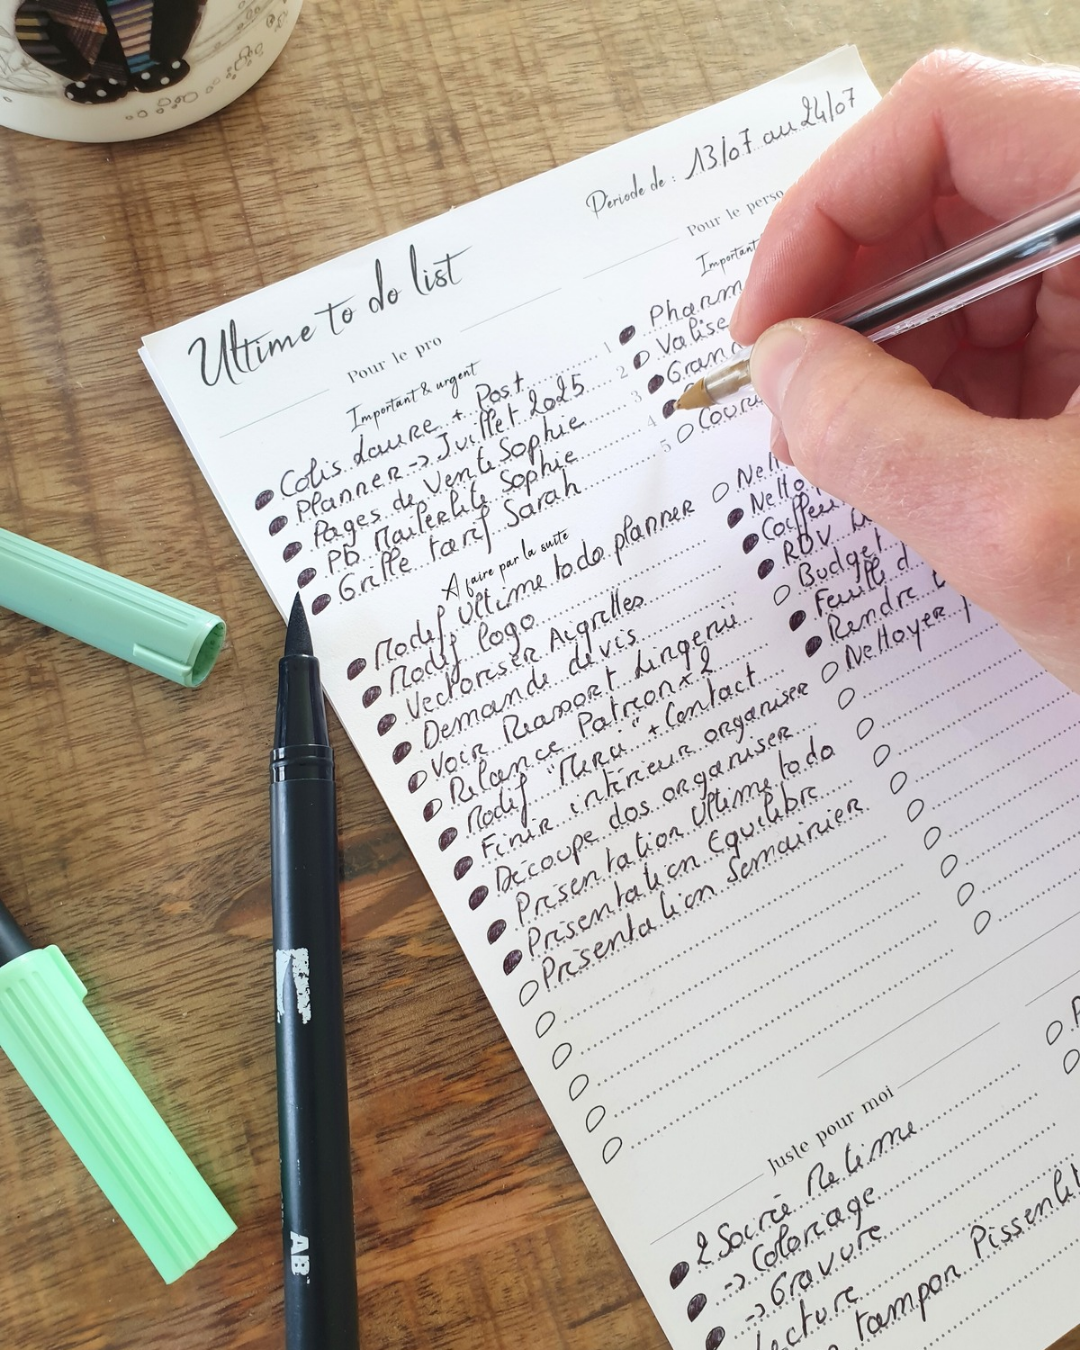 Ultime to do list
Période de : 13/07 au 24/07
Pour le pro
Important & urgent
Colis Laure + Post 1
Planner -> Juillet 2025 2
Pages de Vente Sophie 3
PB Mailerlite Sophie 4
Grille tarif Sarah 5
A faire par la suite
Modif Ultime todo planner
Modif logo
Vectoriser Aigrilles
Demande devis
Voir Reassort Lingerie
Relance Patreon x 2
Modif "Merci" + Contact
Finir intérieur organiser
Découpe dos organiser
Présentation Ultime todo
Présentation Equilibre
Présentation Semainier
Pour le perso
Important
Pharm
Valise
Gran
Cour
Nett
Netto
Coiffeu
RDV
Budget
Feuille d
Rendre
Nettoyer
Juste pour moi
2 Soirée Retime
-> Coloriage
-> Gravure
Lecture
tampon Pissenlit
AB